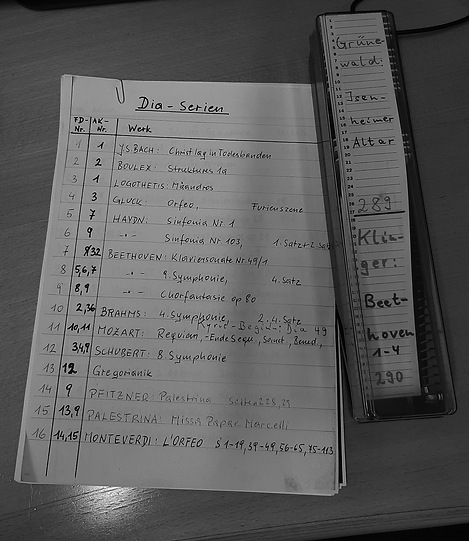 Dia - Serien
FD-Nr. AK-Nr. Werk
1 1 J.S. BACH: Christ lag in Todesbanden
2 2 BOULEZ: Structures 1a
3 1 LOGOTHETIS: Mäandros
4 3 GLUCK: Orfeo, Furienszene
5 7 HAYDN: Sinfonia Nr. 1
6 9 -"- Sinfonia Nr 103, 1. Satz+2. Satz
7 8/32 BEETHOVEN: Klaviersonate Nr 49/1
8 5,6,7 -"- 9. Symphonie, 4. Satz
9 8,9 -"- Chorfantasie op 80
10 2,36 BRAHMS: 4. Symphonie, 2. 4. Satz
Kyrie-Beginn: Dia 49
11 10,11 MOZART: Requiem, -Ende Sequ, Sanct, Bened.,
12 3,4,9 SCHUBERT: 8. Symphonie
13 12 Gregorianik
14 9 PFITZNER Palestrina Seiten 228, 29
15 13,9 PALESTRINA: Missa Papae Marcelli
16 14,15 MONTEVERDI: L'ORFEO S 1-19, 39-49, 56-65, 75-113
Grüne-
wald:
Isen-
heimer
Altar
289
Klin-
ger:
Beet-
hoven
1-4
290